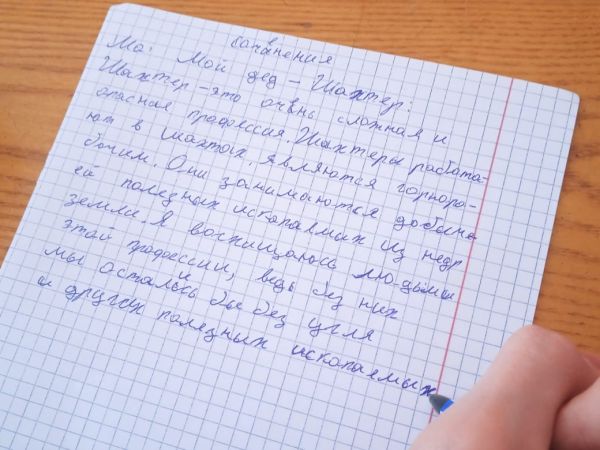 сочинения
На: Мой дед - Шахтер:
Шахтер - это очень сложная и
опасная професcия. Шахтеры работа-
ют в шахтах, являются горнора-
бочим. Они занимаются добыч
ей полезных ископаемых из недр
земли. Я восхищаюсь людьми
этой професcии, ведь без них
мы остались бы без угля
и других полезных ископаемых